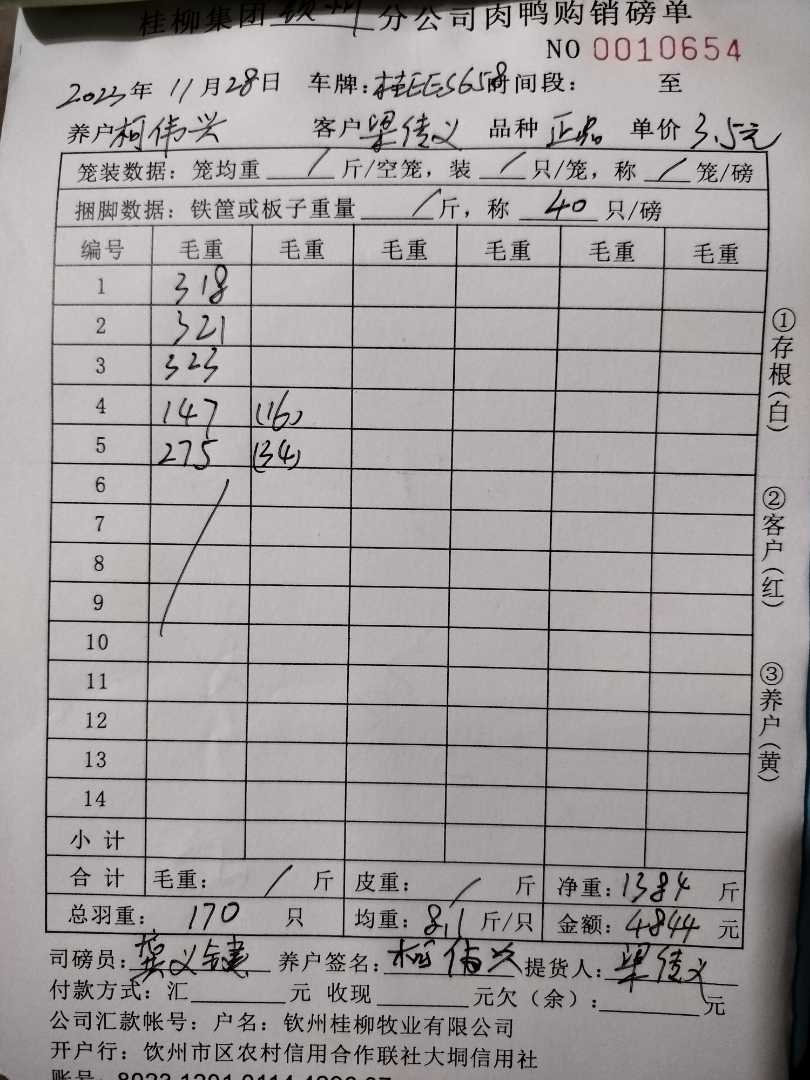 桂柳集团 钦州 分公司肉鸭购销磅单
NO 0010654
2023年 11月28日 车牌:桂EES658 时间段: 至
养户 柯伟兴 客户 梁传义 品种 正品 单价 3.5元
笼装数据: 笼均重 / 斤/空笼, 装 / 只/笼, 称 / 笼/磅
捆脚数据: 铁筐或板子重量 / 斤, 称 40 只/磅
编号 毛重 毛重 毛重 毛重 毛重 毛重
1 318
2 321
3 323
4 147 (16)
5 275 (34)
6
7
8
9
10
11
12
13
14
小 计
合 计 毛重: / 斤 皮重: / 斤 净重: 1384 斤
总羽重: 170 只 均重: 8.1 斤/只 金额: 4844 元
司磅员: 养户签名: 柯伟兴 提货人: 梁传义
付款方式: 汇 元 收现 元欠(余): 元
公司汇款帐号: 户名: 钦州桂柳牧业有限公司
开户行: 饮州市区农村信用合作联社大垌信用社
①存根(白)
②客户(红)
③养户(黄)